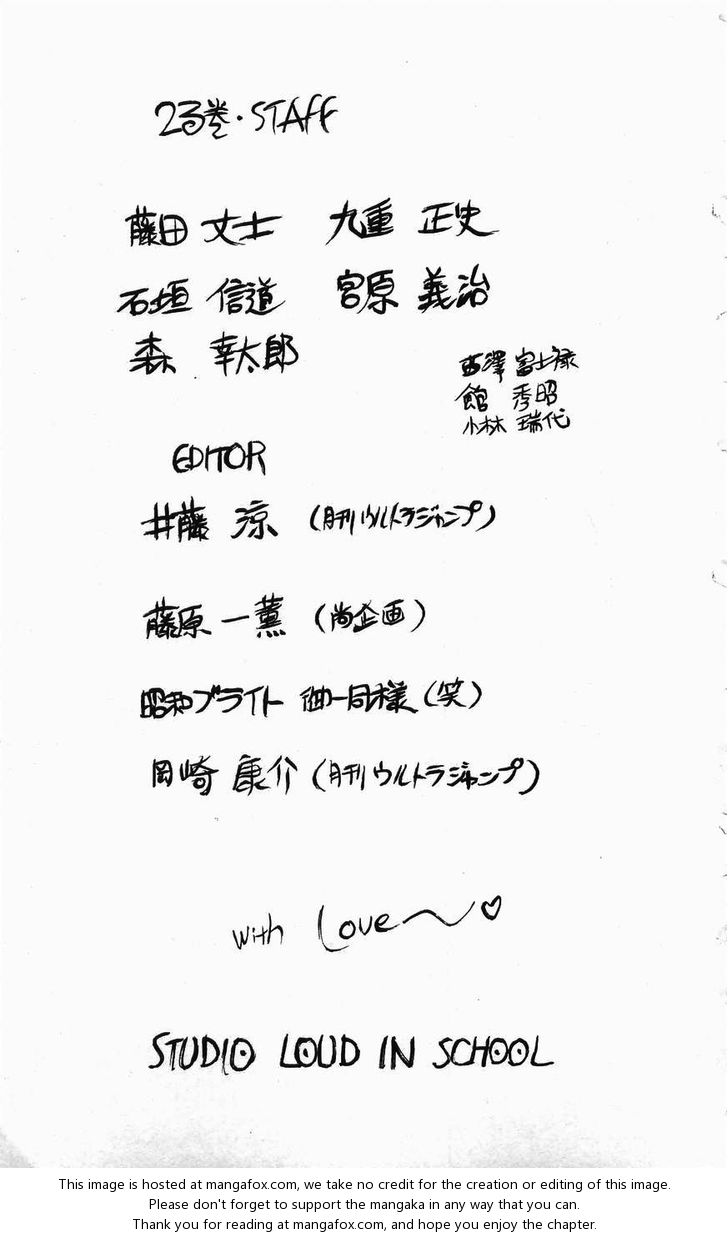 23巻・STAFF
藤田 丈士 九重 正史
石垣 信道 宮原 義治
森 幸太郎
西澤 富士禄
館 秀昭
小林 瑞代
EDITOR
井藤 涼 (月刊ウルトラジャンプ)
藤原 一薫 (尚企画)
昭和ブライト 御一同様 (笑)
岡崎 康介 (月刊ウルトラジャンプ)
with Love〜♡
STUDIO LOUD IN SCHOOL
This image is hosted at mangafox.com, we take no credit for the creation or editing of this image.
Please don't forget to support the mangaka in any way that you can.
Thank you for reading at mangafox.com, and hope you enjoy the chapter.